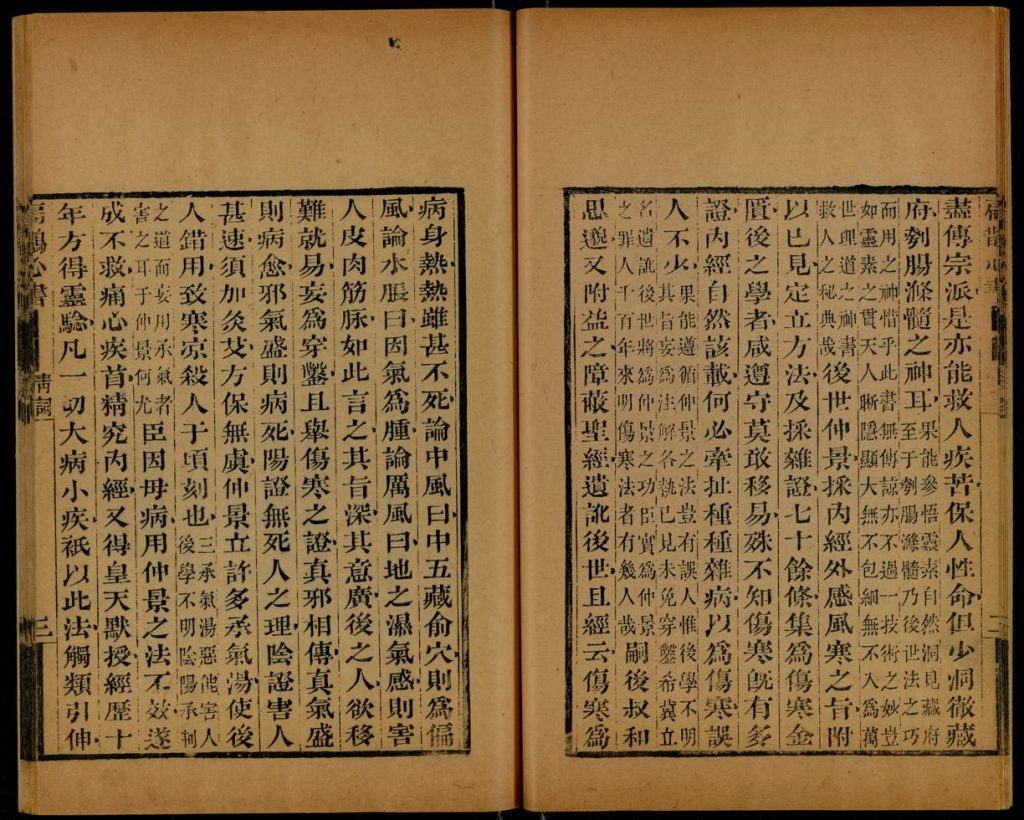 扁鵲心書
二
盡傳宗派是亦能救人疾苦保人性命但少洞徹藏
府刳腸滌髓之神耳果能參悟靈素自然洞見藏府
至于刳腸滌髓乃後世法之巧
而用之神惜乎此書無傳諒亦不過一技術之妙豈
如靈素之貫天人晰隱顯大無不包細無不入為萬
世理道之神書
救人之秘典哉後世仲景採內經外感風寒之旨附
以已見定立方法及採雜證七十餘條集為傷寒金
匱後之學者咸遵守莫敢移易殊不知傷寒旣有多
證內經自然該載何必牽扯種種雜病以為傷寒誤
人不少果能遵循仲景之法豈有誤人惟後學不明
其旨妄為法解各執已見未免穿鑿希冀立
名遺訛後世將為仲景之功臣實為仲景
之罪人千百年來明傷寒法者有幾人哉嗣後叔和
思邈又附益之障蔽聖經遺訛後世且經云傷寒為
病身熱熱雖甚不死論中風曰中五藏俞穴則為偏
風論水脹曰因氣為腫論厲風曰地之濕氣感則害
人皮肉筋脉如此言之其旨深其意廣後之人欲移
難就易妄為穿鑿且舉傷寒之證真邪相傳真氣盛
則病愈邪氣盛則病死陽證無死人之理陰證害人
甚速須加灸艾方保無虞仲景立許多承氣湯使後
人錯用致寒凉殺人于頃刻也三承氣湯惡能害人
後學不明陰陽承制
之道而妄用承氣者
害之耳于仲景何尤臣因母病用仲景之法不效遂
成不救痛心疾首精究內經又得皇天默授經歷十
年方得靈驗凡一切大病小疾祇以此法觸類引伸
扁鵲心書
請詞
三